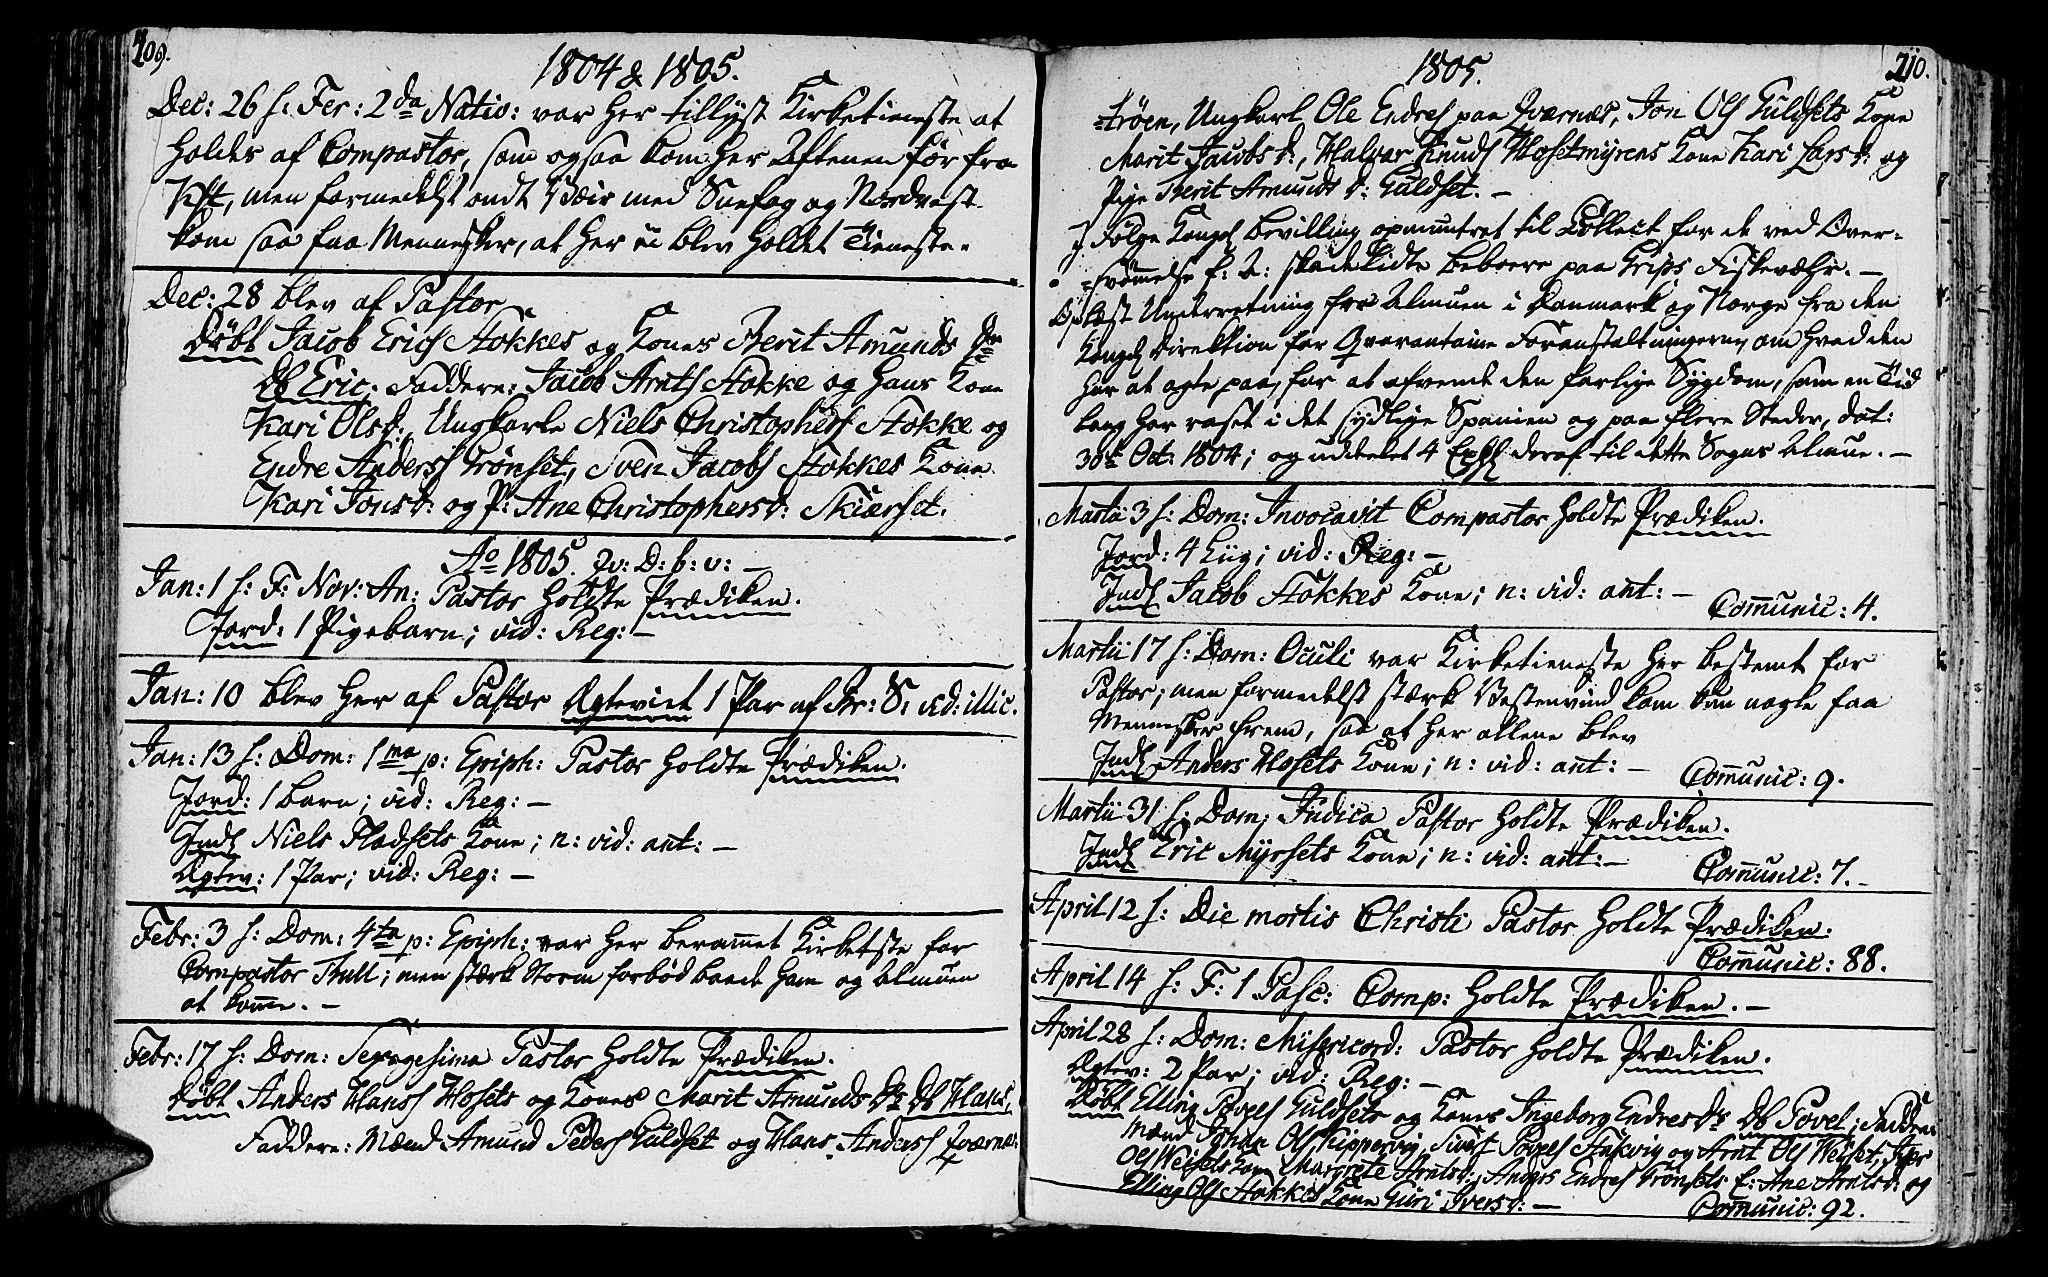 209.
1804 & 1805.
Dec: 26 h: Fer: 2da Nativ: var her tillyst Kirketieneste at
holdes af Compastor, som ogsaa kom her Aftenen før fra
men formedelst ondt Veir med Snefog og Nordvest
kom saa faa Mennesker, at her ei blev holdet Tieneste.
Dec: 28 blev af Pastor
Døbt Jacob Erichs Stokkes og Kones Berit Amunds Dr
Db Eric; Faddere: Jacob Arnts Stokke og hans Kone
Kari Olsd:, Ungkarle Niels Christophers Stokke og
Endre Anderss Trønset, Sven Jacobs Stokkes Kone
Kari Jonsd: og P: Ane Christophersd: Skiærset.
Ao 1805. Qv: D: b: v: —
Jan: 1 h: F: Nov: An: Pastor holdte Prædiken.
Jord: 1 Pigebarn; vid: Reg: —
Jan: 10 blev her af Pastor Ægteviet 1 Par af Br: S: vid: illic.
Jan: 13 h: Dom: 1ma p: Epiph: Pastor holdte Prædiken.
Jord: 1 barn; vid: Reg: —
Indl Niels Fladsets Kone; n: vid: ant: —
Ægtev: 1 Par; vid: Reg: —
Febr: 3 h: Dom: 4ta p: Epiph: var her berammet Kirketste for
Compastor Bull; men stærk Storm forbød baade ham og Almuen
at komme. —
Febr: 17 h: Dom: Sexagesima Pastor holdte Prædiken.
Døbt Anders Hanss Hosets og Kones Marit Amunds Dr Db Hans,
Faddere: Mænd Amund Peders Guldset og Hans Anderss Qværnes
210.
1805.
=trøen, Ungkarl Ole Endres paa Qværnes, Jon Ols Guldsets Kone
Marit Jacobsd:, Halvar Knuds Hosetmyrens Kone Kari Larsd: og
Pige Berit Amundsd: Guldset. —
I følge Kongel bevilling opmuntret til Collect for de ved Over=
=svømmelse f: A: skadelidte beboere paa Grips Fiskevæhr. —
Oplæst Underretning for Almuen i Danmark og Norge fra den
Kongel Direktion for Qvarantaine Foranstaltningerne, om hvad den
har at agte paa, for at afvende den farlige Sygdom, som en Tid
lang har raset i det sydlige Spanien og paa flere Steder, dat:
30te Oct: 1804; og uddelet 4 Expl deraf til dette Sogns Almue. —
Martii 3 h: Dom: Invocavit Compastor holdte Prædiken.
Jord: 4 Liig; vid: Reg: —
Indl Jacob Stokkes Kone; n: vid: ant: —
Communic: 4.
Martii 17 h: Dom: Oculi var Kirketieneste her bestemt for
Pastor; men formedelst stærk Vestenvind kom kun nogle faa
Mennesker frem, saa at her allene blev
Indl Anders Hosets Kone; n: vid: ant: —
Communic: 9.
Martii 31 h: Dom: Judica Pastor holdte Prædiken.
Indl Eric Myrsets Kone; n: vid: ant: —
Communic: 7. —
April 12 h: Die mortis Christi Pastor holdte Prædiken.
Communic: 88.
April 14 h: F: 1 Pasc: Comp: holdte Prædiken. —
April 28 h: Dom: Misericord: Pastor holdte Prædiken.
Ægtev: 2 Par; vid: Reg: —
Døbt Elling Povels Guldsets og Kones Ingeborg Endres Dr Db Povel; Faddere
Mænd Johan Ols Kippervig, Siurt Povels Stikvig og Arnt Ols Weiset,
Ols Weisets Kone Margrete Arntsd:, Anders Endres Trønsets E: Ane Arntsd: og
Elling Ols Stokkes Kone Guri Iversd: —
Communic: 92.